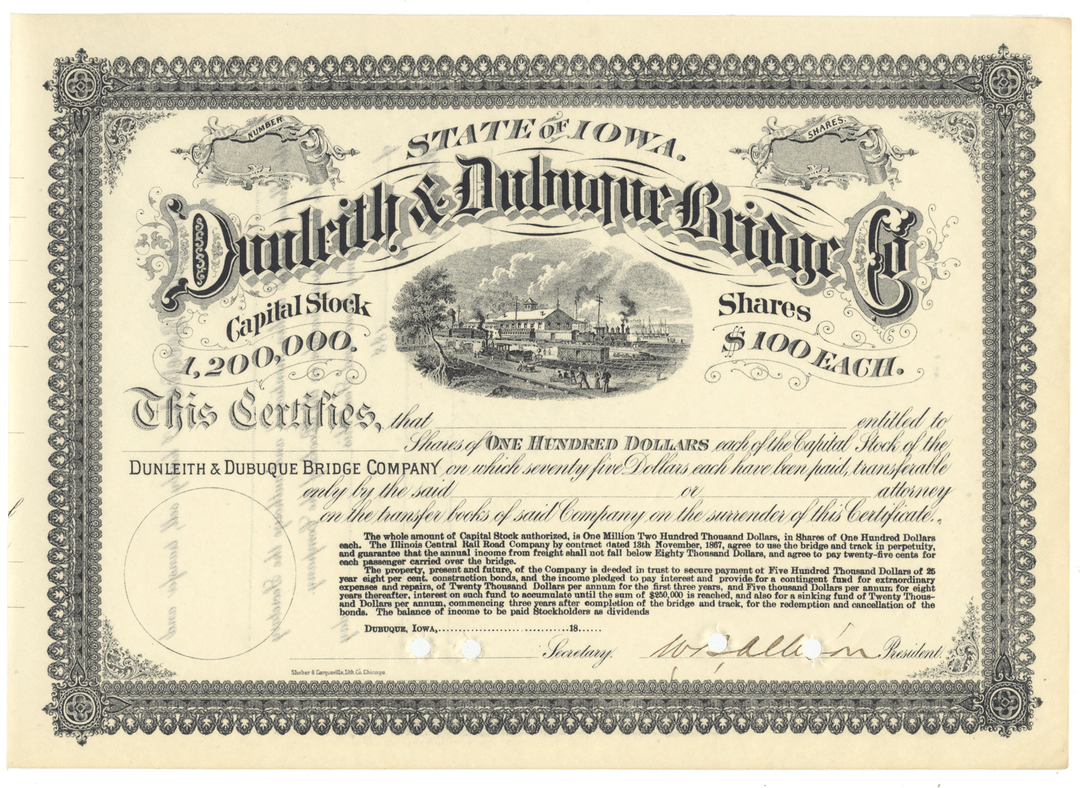 NUMBER
STATE OF IOWA.
SHARES.
Dunleith & Dubuque Bridge Co
Capital Stock
1,200,000.
Shares
$100 EACH.
This Certifies, that entitled to
Shares of ONE HUNDRED DOLLARS each of the Capital Stock of the
DUNLEITH & DUBUQUE BRIDGE COMPANY on which seventy five Dollars each have been paid, transferable
only by the said or attorney
on the transfer books of said Company on the surrender of this Certificate.
The whole amount of Capital Stock authorized, is One Million Two Hundred Thousand Dollars, in Shares of One Hundred Dollars
each. The Illinois Central Rail Road Company by contract dated 13th November, 1867, agree to use the bridge and track in perpetuity,
and guarantee that the annual income from freight shall not fall below Eighty Thousand Dollars, and agree to pay twenty-five cents for
each passenger carried over the bridge.
The property, present and future, of the Company is deeded in trust to secure payment of Five Hundred Thousand Dollars of 25
year eight per cent. construction bonds, and the income pledged to pay interest and provide for a contingent fund for extraordinary
expenses and repairs, of Twenty Thousand Dollars per annum for the first three years, and Five thousand Dollars per annum for eight
years thereafter, interest on such fund to accumulate until the sum of $250,000 is reached, and also for a sinking fund of Twenty Thous-
and Dollars per annum, commencing three years after completion of the bridge and track, for the redemption and cancellation of the
bonds. The balance of income to be paid Stockholders as dividends
DUBUQUE, IOWA,..............................18......
Secretary. W B Allison President.
Shober & Carqueville, Lith. Co. Chicago.